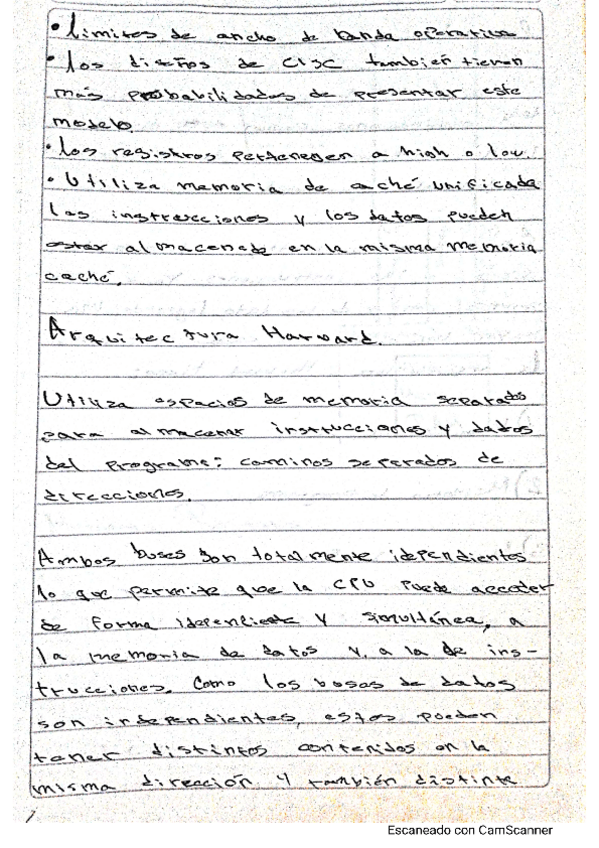 • límites de ancho de banda operativa
• Los diseños de CISC también tienen
más probabilidades de presentar este
modelo.
• Los registros pertenecen a high o low.
• Utiliza memoria de caché unificada
las instrucciones y los datos pueden
estar almacenado en la misma memoria
caché.
Arquitectura Harward.
Utiliza espacios de memoria separados
para almacenar instrucciones y datos
del programa: caminos separados de
direcciones.
Ambos buses son totalmente idependientes
lo que permite que la CPU puede acceder
de forma idependiente y simultánea, a
la memoria de datos y, a la de ins-
trucciones. Como los buses de datos
son independientes, estos pueden
tener distintos contenidos en la
misma dirección y también distinta
Escaneado con CamScanner